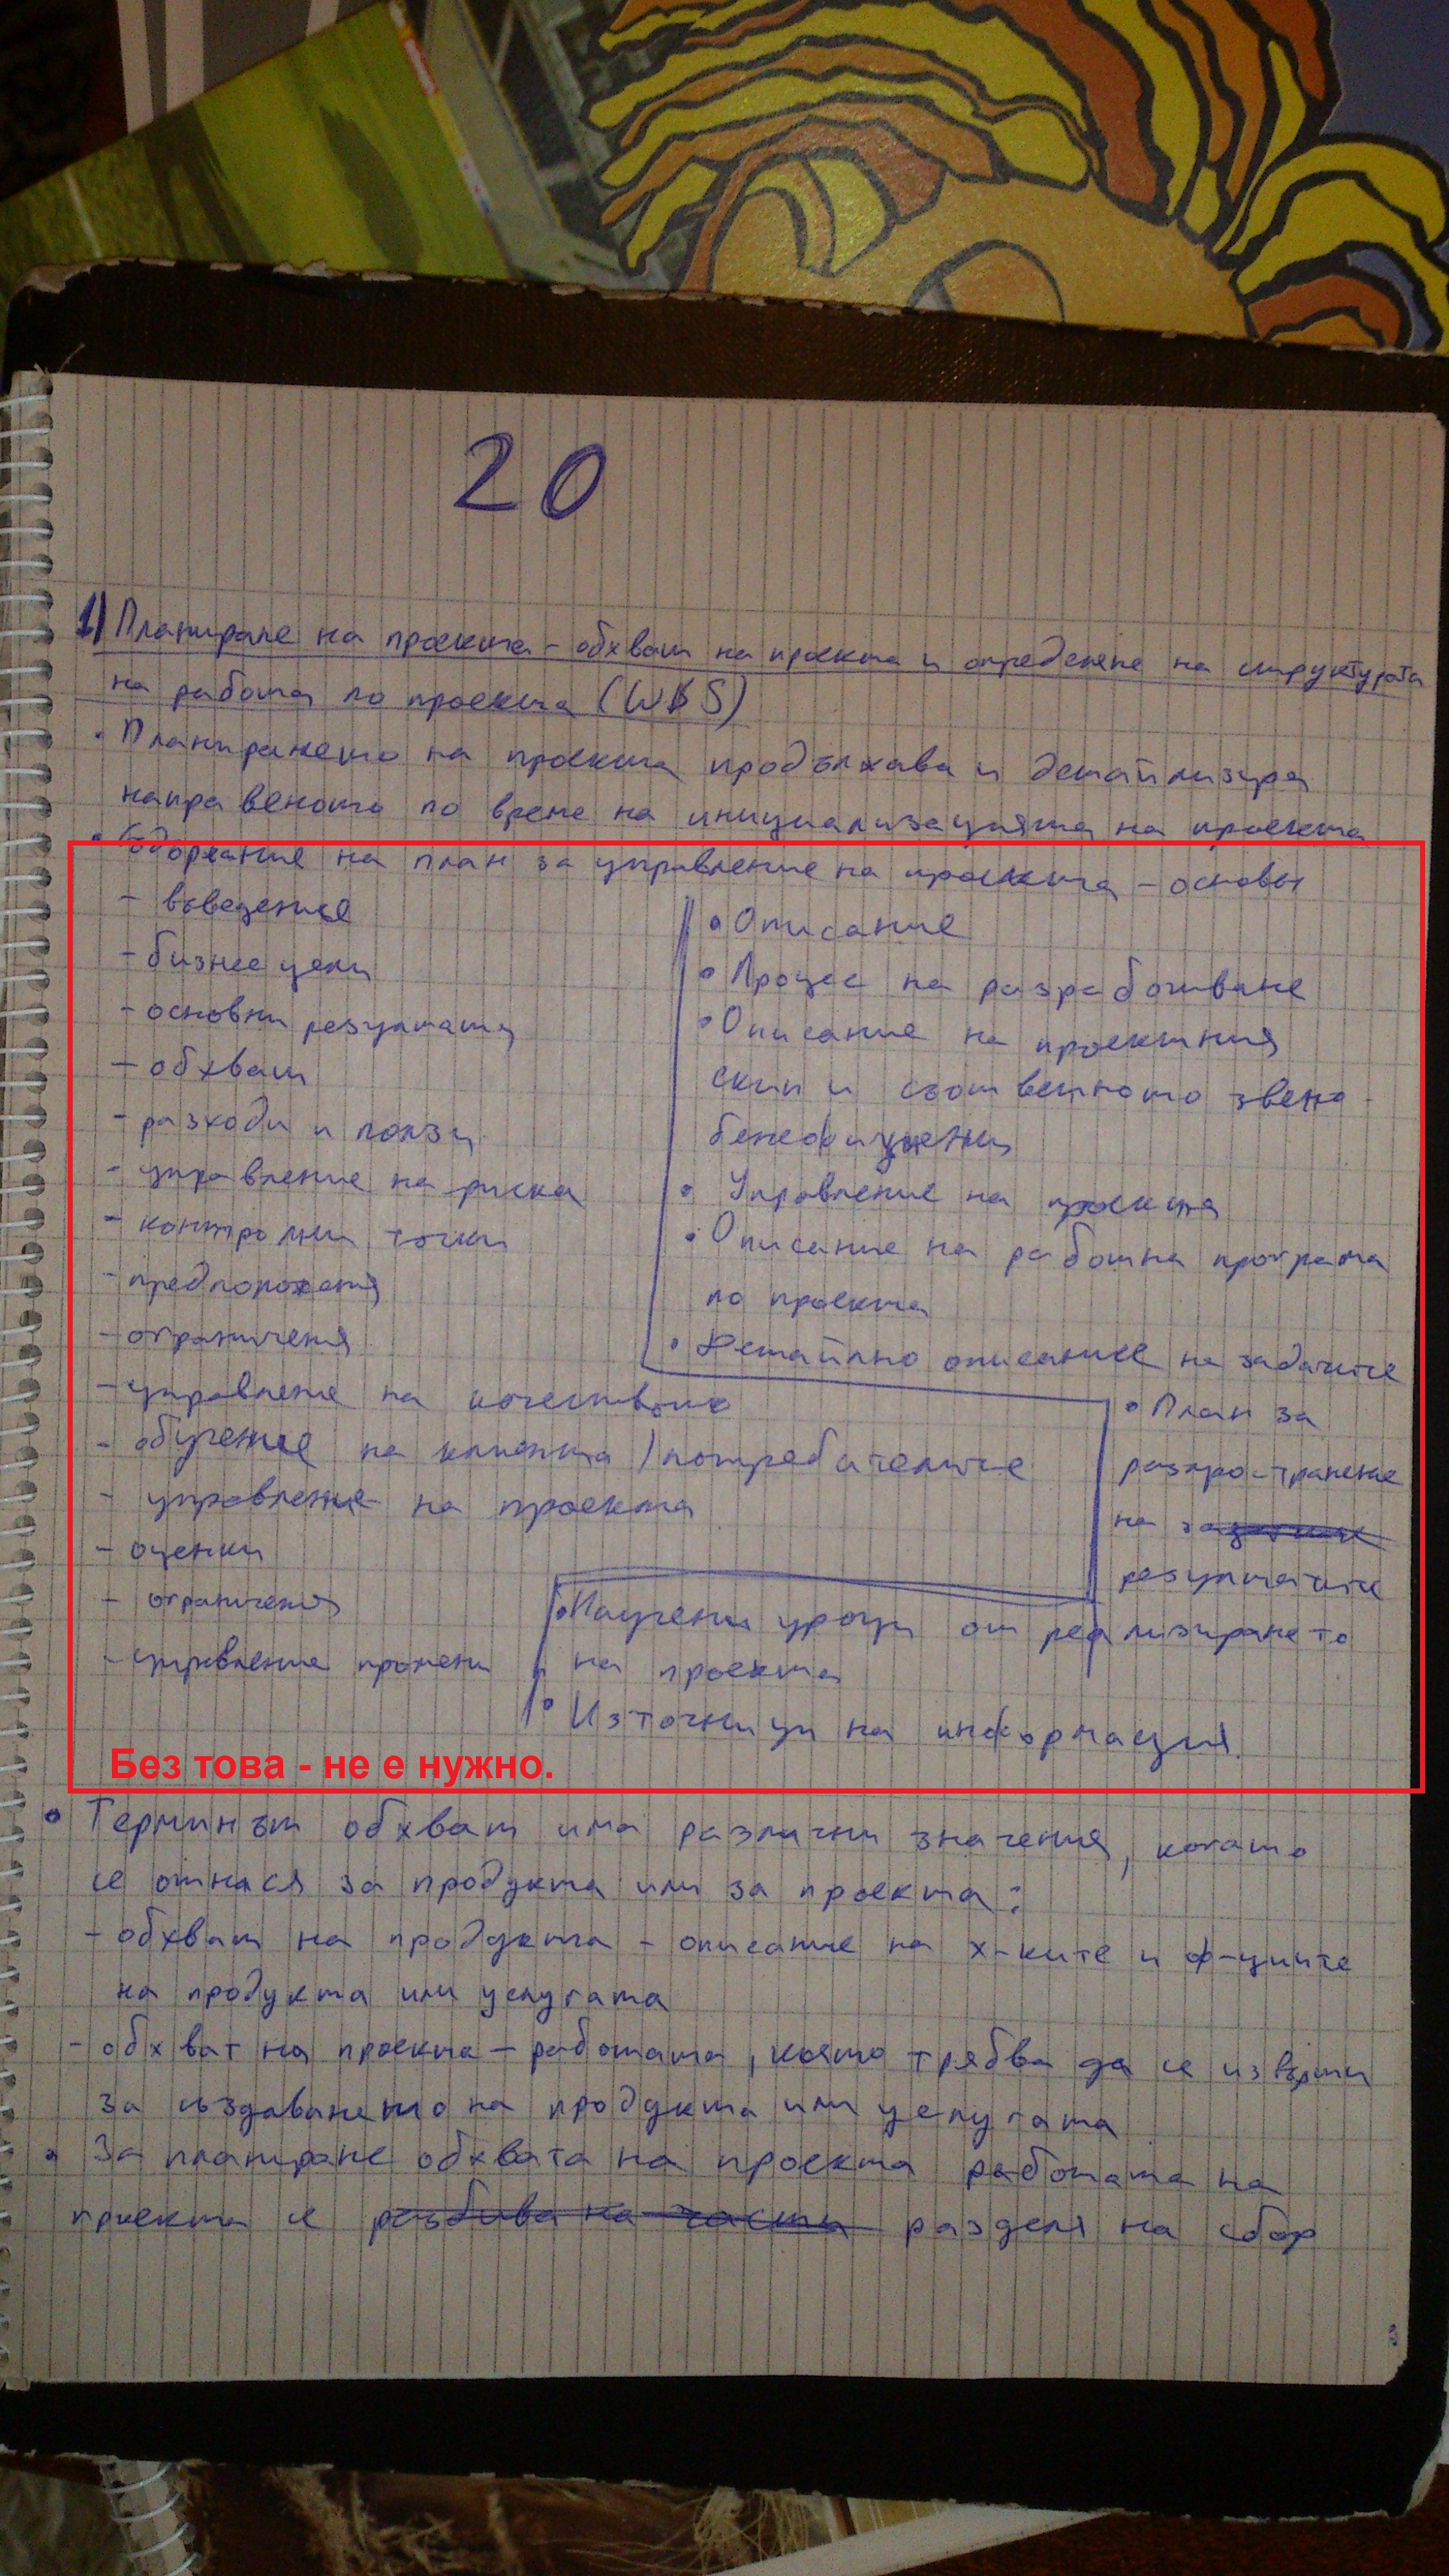 20
1) Планиране на проекта - обхват на проекта и определяне на структурата
на работа по проекта (WBS)
• Планирането на проекта продължава и детайлизира
направеното по време на инициализацията на проекта
• Съдържание на план за управление на проекта - основен
- въведение
- бизнес цели
- основни резултати
- обхват
- разходи и ползи
- управление на риска
- контролни точки
- предположения
- ограничения
- управление на качеството
- обучение на клиента / потребителите
- управление на проекта
- оценки
- ограничения
- управление промени
• Описание
• Процес на разработване
• Описание на проектния
екип и съответното звено -
бенефициенти
• Управление на проекта
• Описание на работна програма
по проекта
• Детайлно описание на задачите
• План за
разпространение
на
резултатите
• Научени уроци от реализирането
на проекта
• Източници на информация.
Без това - не е нужно.
• Терминът обхват има различни значения, когато
се отнася за продукта или за проекта:
- обхват на продукта - описание на х-ките и ф-циите
на продукта или услугата
- обхват на проекта - работата, която трябва да се извърши
за създаването на продукта или услугата
• За планиране обхвата на проекта работата на
проекта се разбива на части разделя на сбор